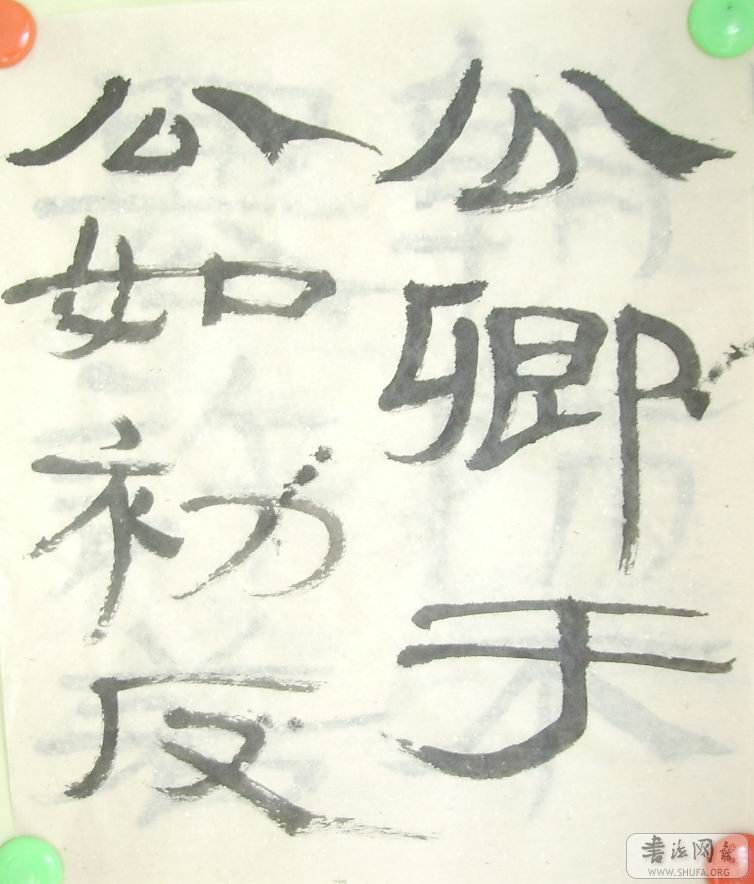 公卿于
公如初反
书法网
WWW.SHUFA.ORG